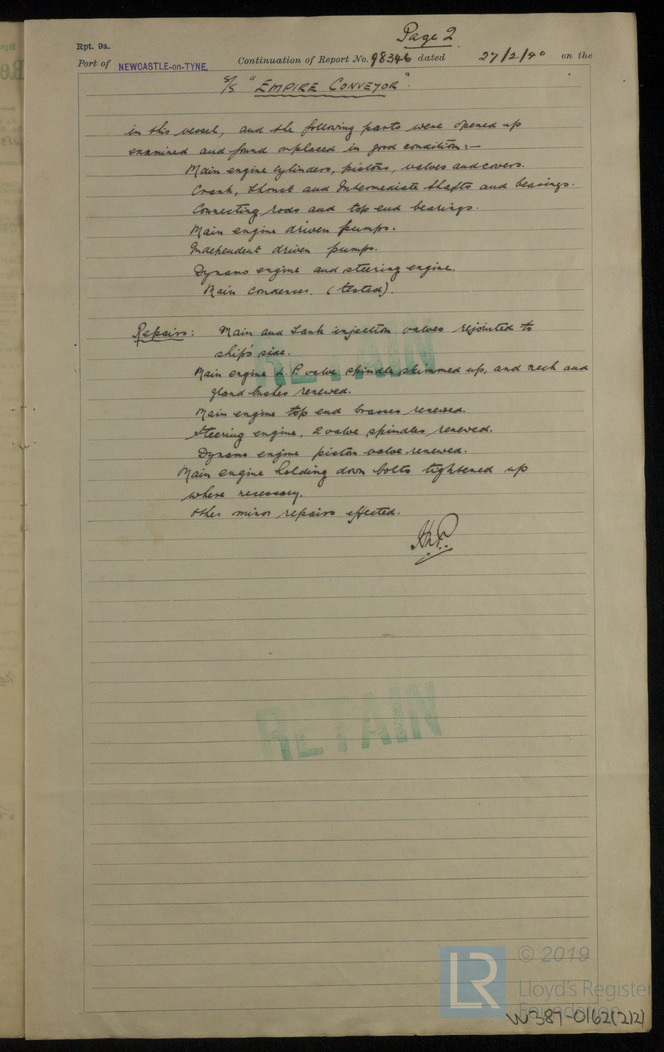 Page 2
Rpt. 9a.
Port of NEWCASTLE-on-TYNE. Continuation of Report No. 98346 dated 27/2/40 on the
S/S "EMPIRE CONVEYOR".
in this vessel, and the following parts were opened up
examined and found or placed in good condition:-
Main engine cylinders, pistons, valves and covers.
Crank, thrust and Intermediate shafts and bearings.
Connecting rods and top end bearings.
Main engine driven pumps.
Independent driven pumps.
Dynamo engine and steering engine.
Main condenser. (tested).
Repairs: Main and tank injection valves rejointed to
ship's side.
Main engine L.P. valve spindle skimmed up, and neck and
gland bushes renewed.
Main engine top end brasses renewed.
Steering engine, 2 valve spindles renewed.
Dynamo engine piston valve renewed.
Main engine holding down bolts tightened up
where necessary.
Other minor repairs effected.
RETAIN
RETAIN
LR © 2019
Lloyd's Register
Foundation
W389-0162(2/2)